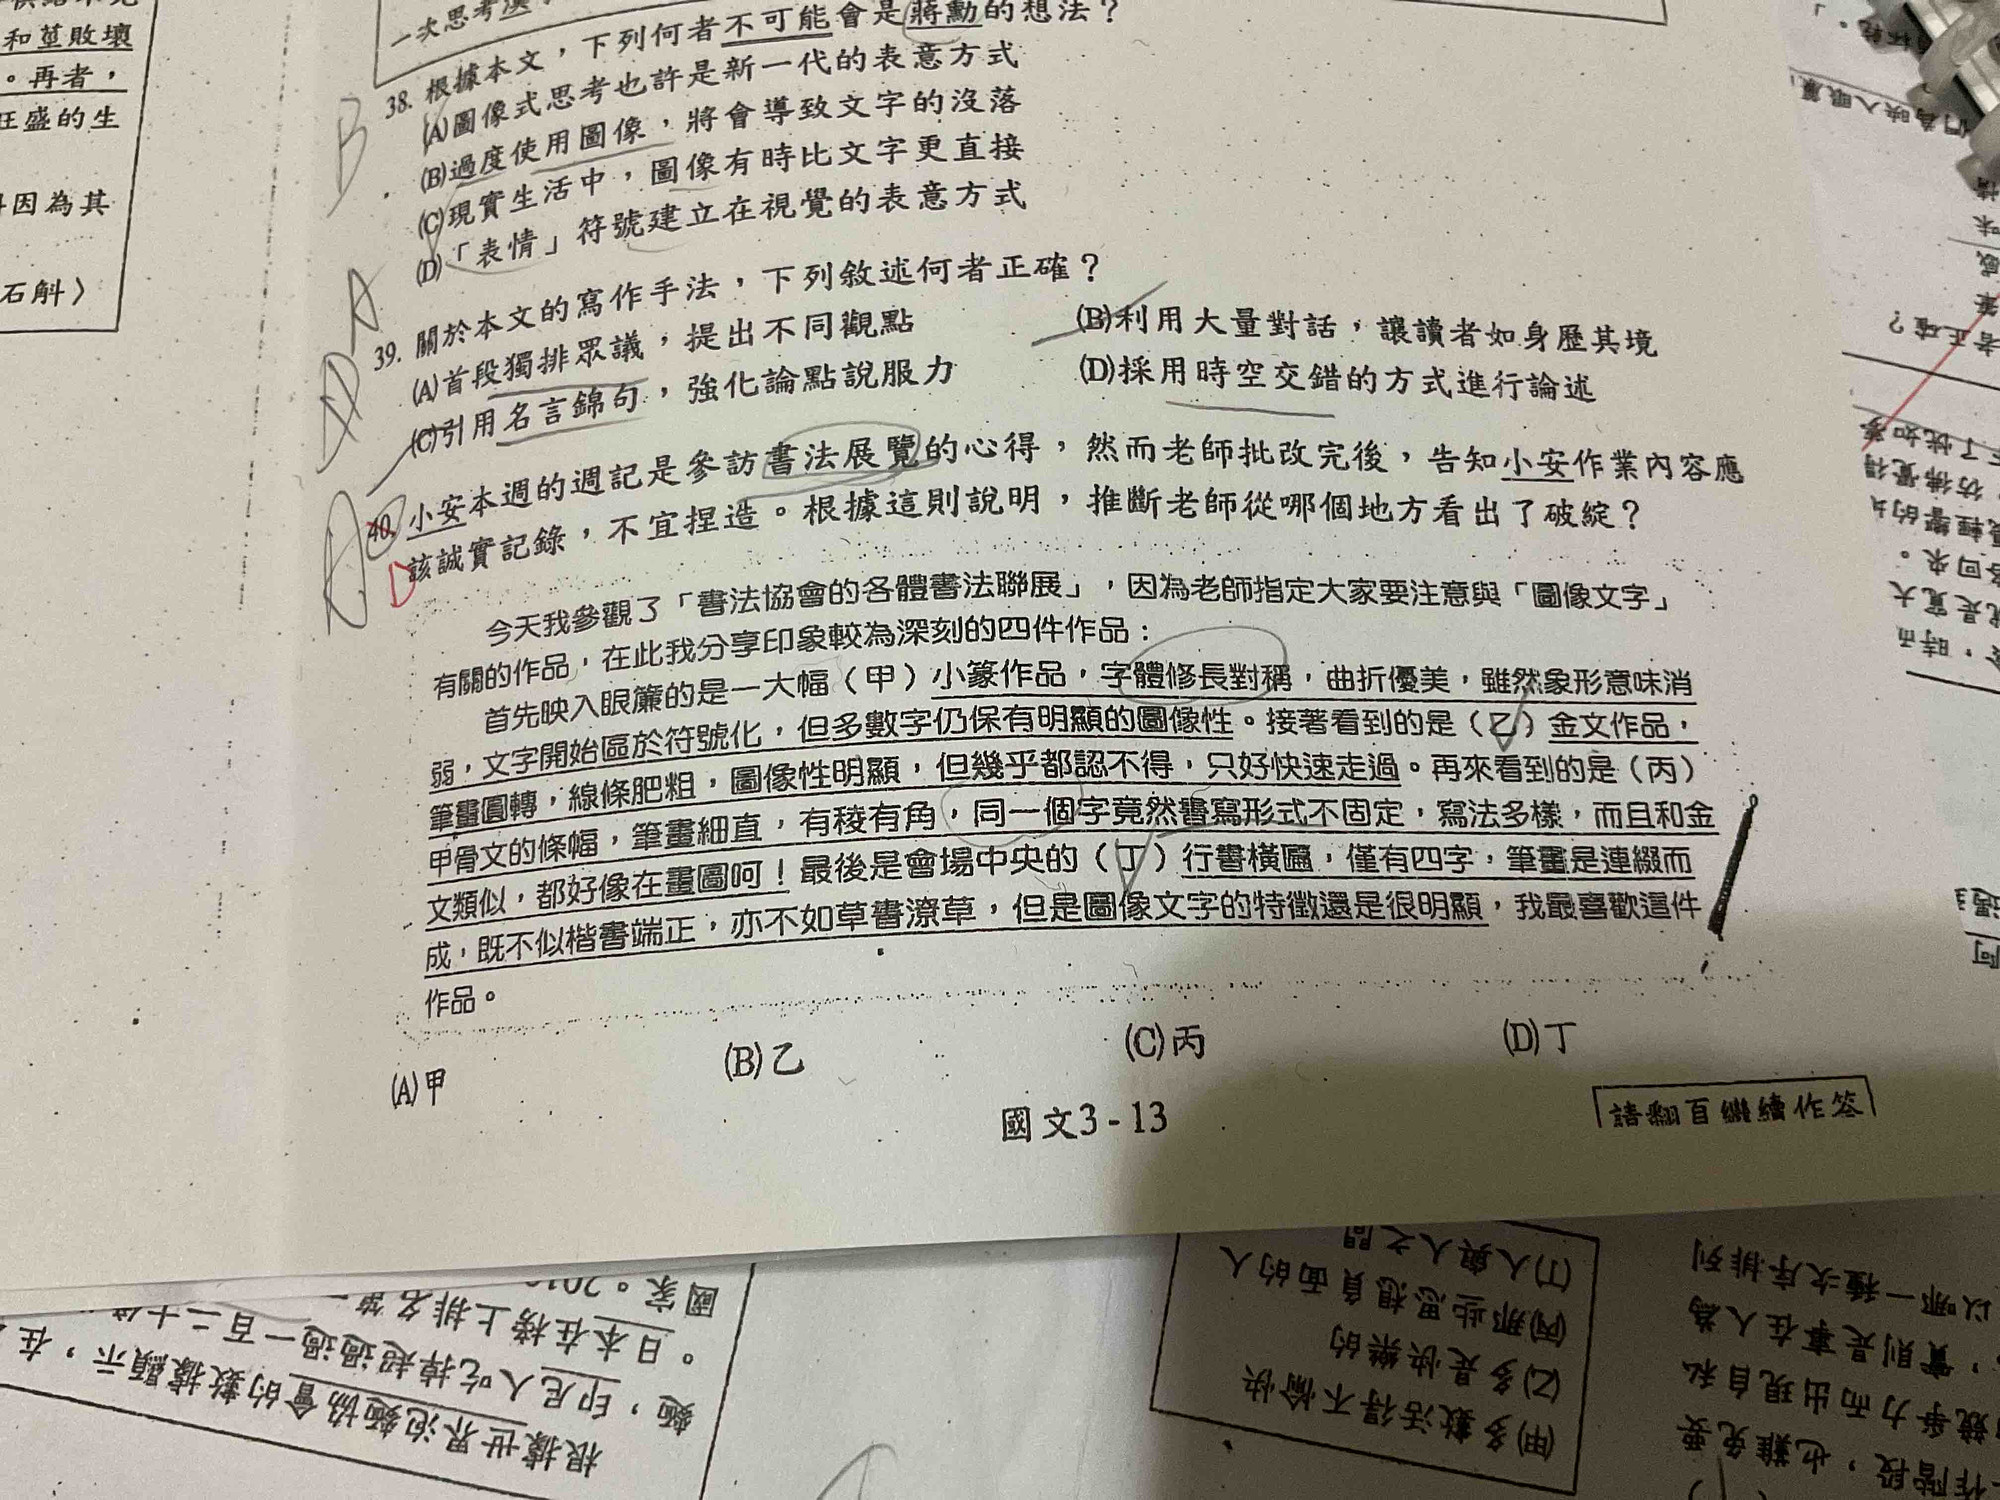 和莖敗壞
。再者，
旺盛的生
因為其
石斛〉
一次思考
38. 根據本文，下列何者不可能會是蔣勳的想法？
(A)圖像式思考也許是新一代的表意方式
(B)過度使用圖像，將會導致文字的沒落
(C)現實生活中，圖像有時比文字更直接
(D)「表情」符號建立在視覺的表意方式
B
39. 關於本文的寫作手法，下列敘述何者正確？
(A)首段獨排眾議，提出不同觀點
(B)利用大量對話，讓讀者如身歷其境
(C)引用名言錦句，強化論點說服力
(D)採用時空交錯的方式進行論述
A
40. 小安本週的週記是參訪書法展覽的心得，然而老師批改完後，告知小安作業內容應
該誠實記錄，不宜捏造。根據這則說明，推斷老師從哪個地方看出了破綻？
D
今天我參觀了「書法協會的各體書法聯展」，因為老師指定大家要注意與「圖像文字」
有關的作品，在此我分享印象較為深刻的四件作品：
首先映入眼簾的是一大幅（甲）小篆作品，字體修長對稱，曲折優美，雖然象形意味消
弱，文字開始區於符號化，但多數字仍保有明顯的圖像性。接著看到的是（乙）金文作品，
筆畫圓轉，線條肥粗，圖像性明顯，但幾乎都認不得，只好快速走過。再來看到的是（丙）
甲骨文的條幅，筆畫細直，有稜有角，同一個字竟然書寫形式不固定，寫法多樣，而且和金
文類似，都好像在畫圖呵！最後是會場中央的（丁）行書橫匾，僅有四字，筆畫是連綴而
成，既不似楷書端正，亦不如草書潦草，但是圖像文字的特徵還是很明顯，我最喜歡這件
作品。
(A)甲
(B)乙
(C)丙
(D)丁
國文3-13
請翻頁繼續作答
根據世界泡麵協會的數據顯示，在
麵，印尼人吃掉超過一百二十
。日本在榜上排名第
國家。
(甲)多數活得不愉快
(乙)多是快樂的
(丙)那些思想負面的人
(丁)人與人之間
以哪一種次序排列
，實則是事在人為
競爭力而出現自私
作階段，也難免要